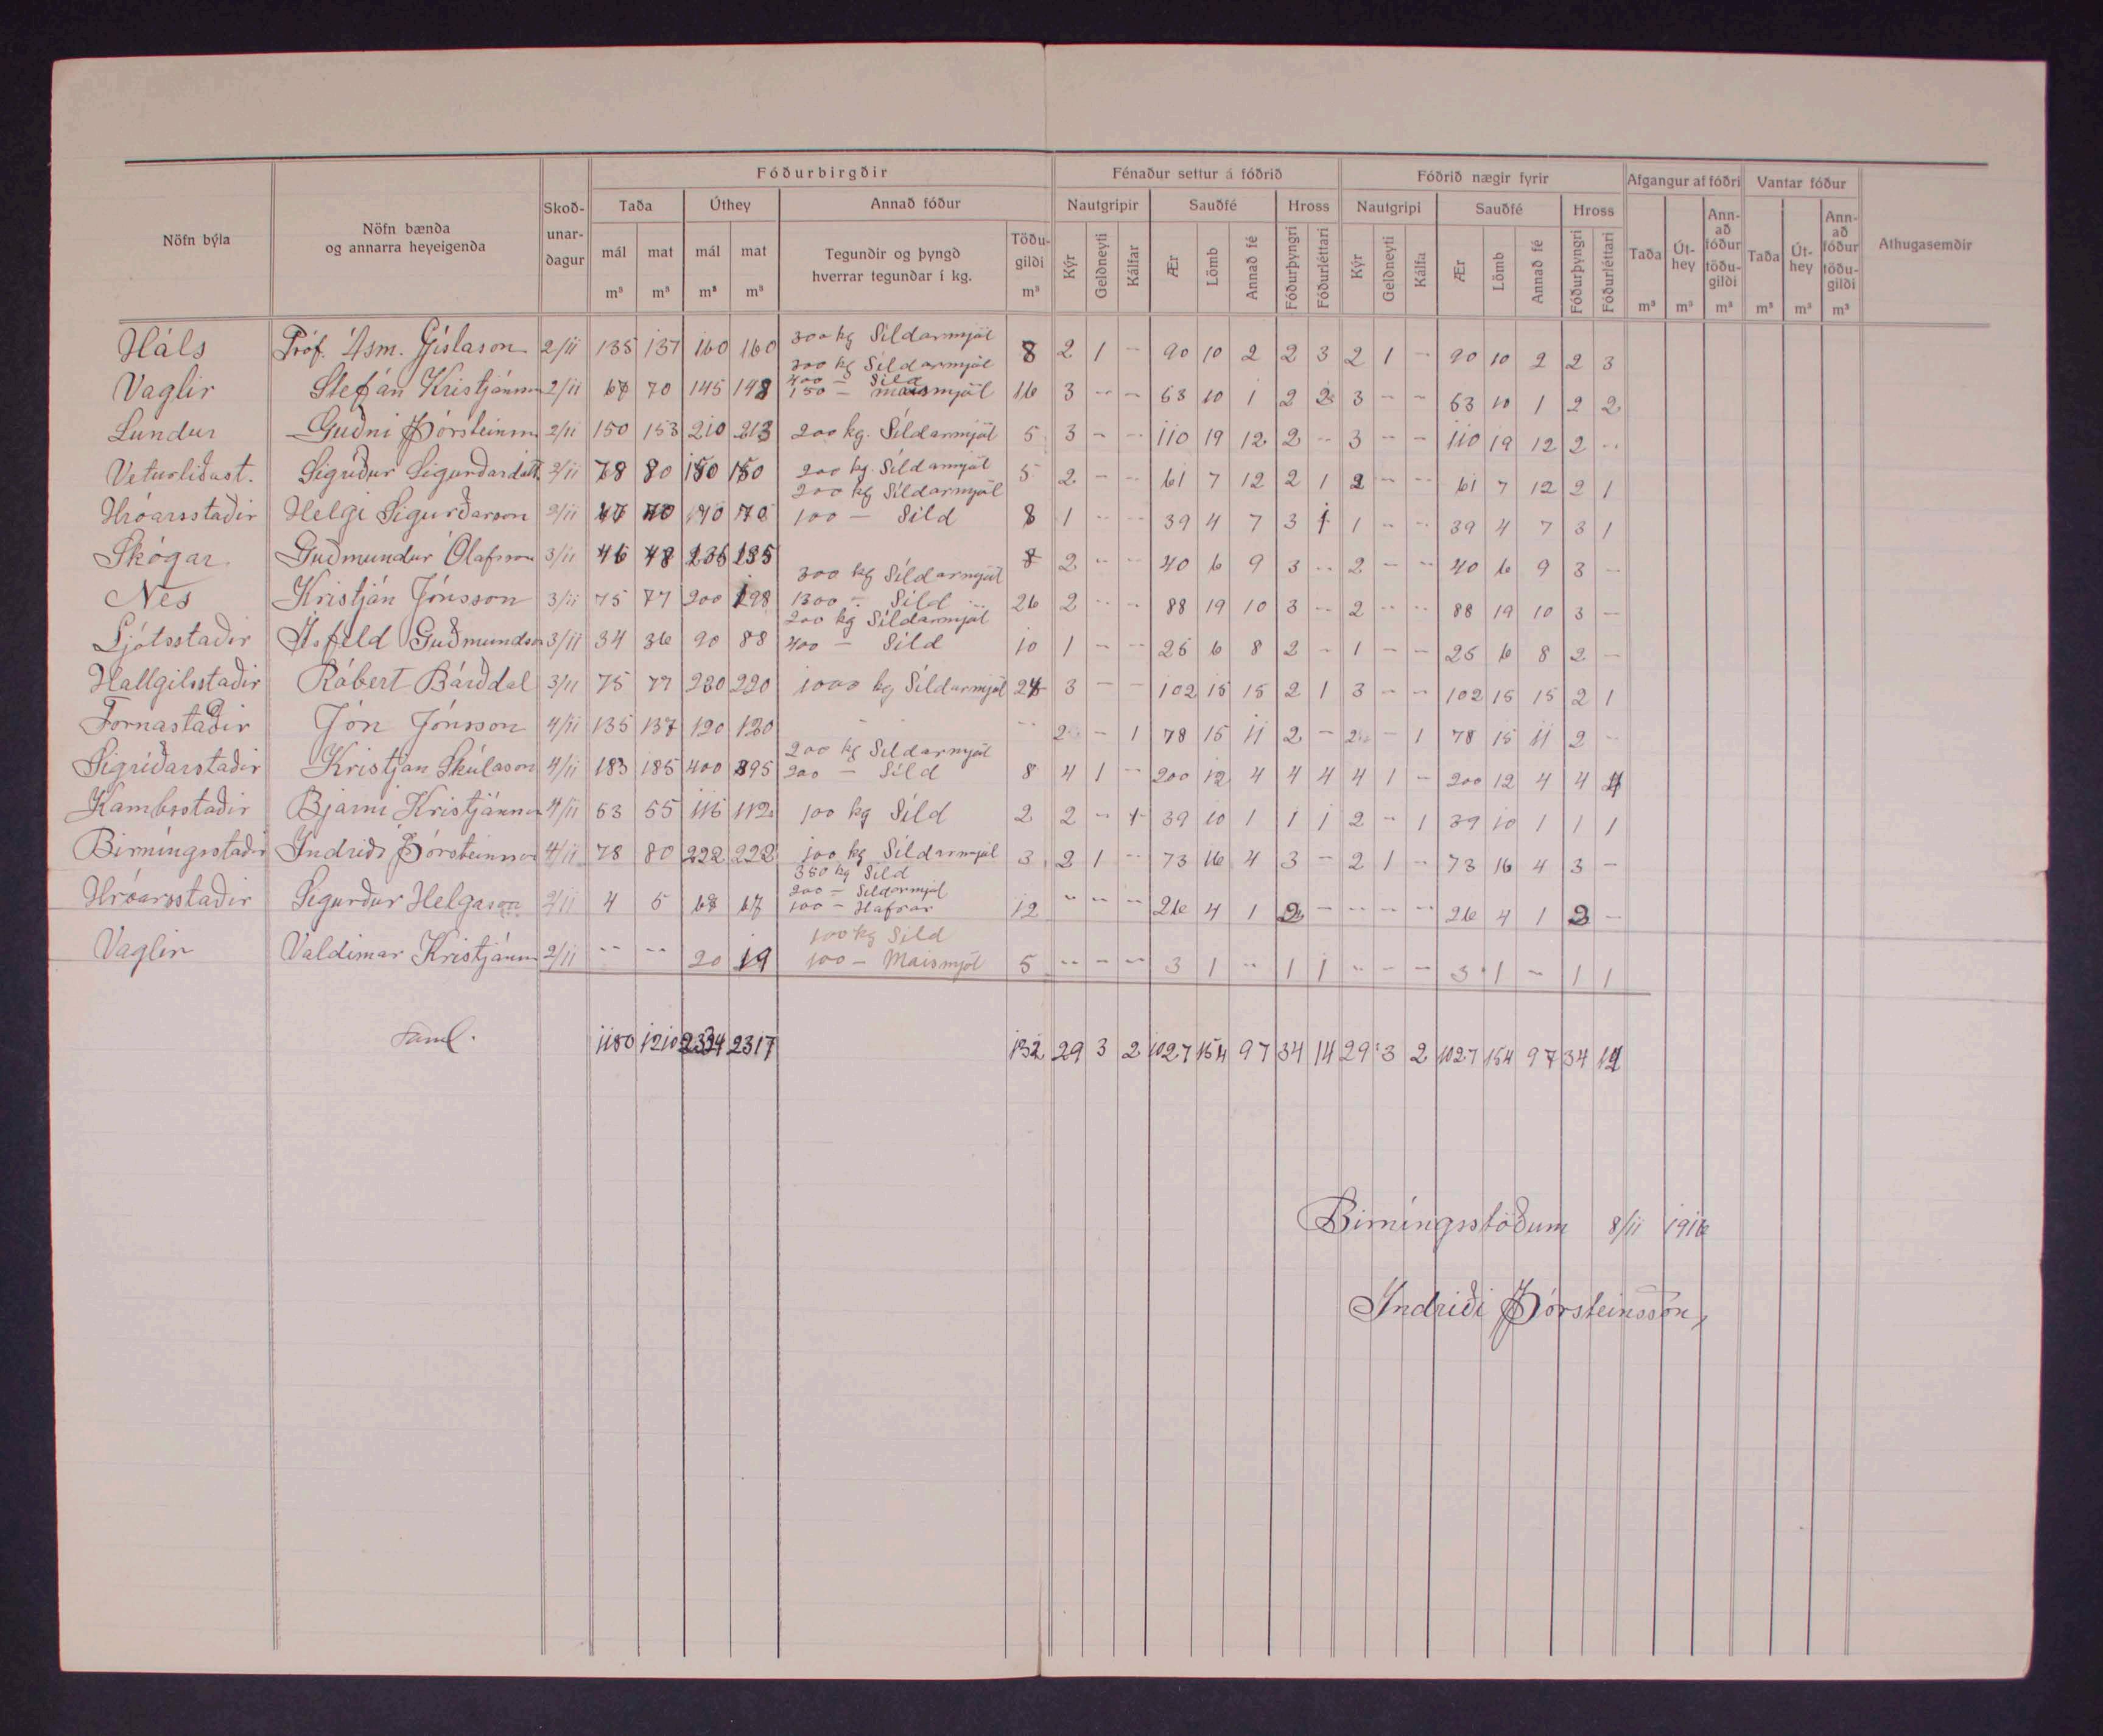 Fóðurbirgðir Fénaður settur á fóðrið Fóðrið nægir fyrir Afgangur af fóðri Vantar fóður
Nöfn býla Nöfn bænda og annarra heyeigenda Skoð-unar-dagur Taða Úthey Annað fóður Nautgripir Sauðfé Hross Nautgripi Sauðfé Hross Taða Út-hey Ann-að fóður töðu-gildi Taða Út-hey Ann-að fóður töðu-gildi Athugasemdir
mál mat mál mat Tegundir og þyngd hverrar tegundar í kg. Töðu-gildi Kýr Geldneyti Kálfar Ær Lömb Annað fé Fóðurþyngri Fóðurléttari Kýr Geldneyti Kálfa Ær Lömb Annað fé Fóðurþyngri Fóðurléttari
m³ m³ m³ m³ m³ m³ m³ m³ m³ m³ m³
Háls Próf. Ásm. Gíslason 2/11 135 137 160 160 300 kg Síldarmjöl 8 2 1 - 90 10 2 2 3 2 1 - 90 10 2 2 3
Vaglir Stefán Kristjánn 2/11 67 70 145 148 300 kg Síldarmjöl 400 - Síld 150 - maismjöl 16 3 - - 63 10 1 2 2 3 - - 63 10 1 2 2
Lundur Guðni Þórsteinn 2/11 150 153 210 213 200 kg. Síldarmjöl 5 3 - - 110 19 12 2 - 3 - - 110 19 12 2 -
Veturliðast. Sigríður Sigurðardótt. 2/11 78 80 150 150 200 kg. Síldarmjöl 5 2 - - 61 7 12 2 1 2 - - 61 7 12 2 1
Hróarsstaðir Helgi Sigurðarson 2/11 170 200 kg Síldarmjöl 100 - Síld 8 1 - - 39 4 7 3 1 1 - - 39 4 7 3 1
Skógar Guðmundur Ólafsson 3/11 46 48 235 235 8 2 - - 40 6 9 3 - 2 - - 40 6 9 3 -
Nes Kristján Jónsson 3/11 75 77 200 198 300 kg Síldarmjöl 1300 - Síld 26 2 - - 88 19 10 3 - 2 - - 88 19 10 3 -
Ljótsstaðir Ísfeld Guðmundson 3/11 34 36 90 88 200 kg Síldarmjöl 400 - Síld 10 1 - - 25 6 8 2 - 1 - - 25 6 8 2 -
Hallgilsstaðir Róbert Bárðdal 3/11 75 77 230 220 1000 kg Síldarmjöl 24 3 - - 102 15 15 2 1 3 - - 102 15 15 2 1
Fornastaðir Jón Jónsson 4/11 135 137 120 120 - - - 2 - 1 78 15 11 2 - 2 - 1 78 15 11 2 -
Sigríðarstaðir Kristján Skúlason 4/11 183 185 400 395 200 kg Síldarmjöl 200 - Síld 8 4 1 - 200 12 4 4 4 4 1 - 200 12 4 4 4
Kambsstaðir Bjarni Kristjánn 4/11 53 55 115 112 100 kg Síld 2 2 - 1 39 10 1 1 1 2 - 1 39 10 1 1 1
Birningsstaðir Indriði Þórsteinsson 4/11 78 80 222 222 100 kg Síldarmjöl 3 2 1 - 73 16 4 3 - 2 1 - 73 16 4 3 -
Hróarsstaðir Sigurður Helgason 2/11 4 5 68 67 350 kg Síld 200 - Síldarmjöl 100 - Hafrar 12 - - - 26 4 1 2 - - - - 26 4 1 2 -
Vaglir Valdimar Kristjánn 2/11 - - 20 19 100 kg Síld 100 - Maismjöl 5 - - - 3 1 - 1 1 - - - 3 1 - 1 1
Saml. 1180 1210 2334 2317 132 29 3 2 1027 154 97 34 14 29 3 2 1027 154 97 34 14
Birningsstöðum 8/11 1916
Indriði Þórsteinsson,